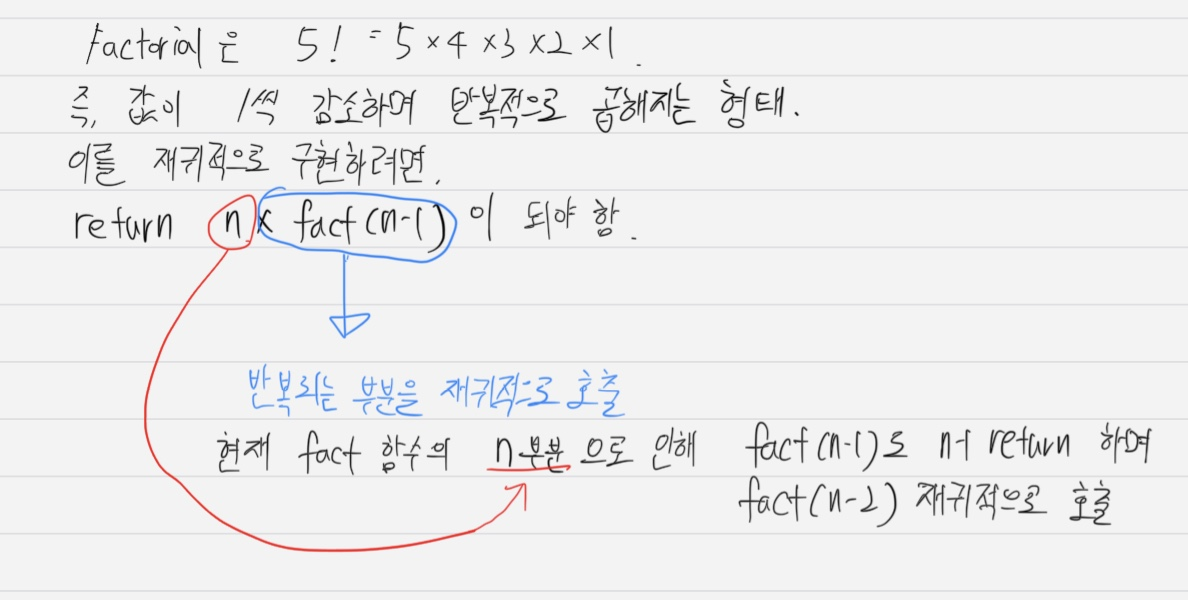 Factorial은 5! = 5×4×3×2×1.
즉, 값이 1씩 감소하며 반복적으로 곱해지는 형태.
이를 재귀적으로 구현하려면,
return n × fact(n-1) 이 되야 함.
반복되는 부분을 재귀적으로 호출
현재 fact 함수의 n부분으로 인해 fact(n-1)도 n-1 return 하며
fact(n-2) 재귀적으로 호출